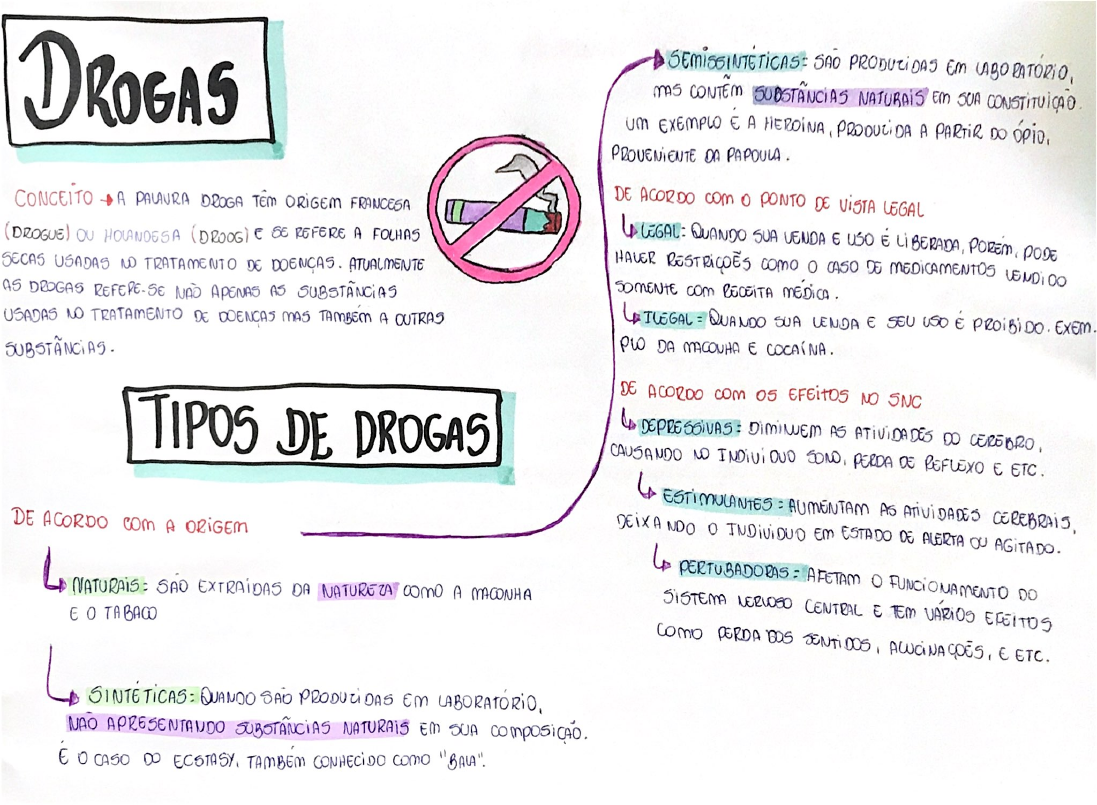 DROGAS
CONCEITO → A PALAVRA DROGA TÊM ORIGEM FRANCESA
(DROGUE) OU HOLANDESA (DROOG) E SE REFERE A FOLHAS
SECAS USADAS NO TRATAMENTO DE DOENÇAS. ATUALMENTE
AS DROGAS REFERE-SE NÃO APENAS AS SUBSTÂNCIAS
USADAS NO TRATAMENTO DE DOENÇAS MAS TAMBÉM A OUTRAS
SUBSTÂNCIAS.
TIPOS DE DROGAS
DE ACORDO COM A ORIGEM
NATURAIS: SÃO EXTRAÍDAS DA NATUREZA COMO A MACONHA
E O TABACO
SINTÉTICAS: QUANDO SÃO PRODUZIDAS EM LABORATÓRIO,
NÃO APRESENTANDO SUBSTÂNCIAS NATURAIS EM SUA COMPOSIÇÃO.
É O CASO DO ECSTASY, TAMBÉM CONHECIDO COMO "BALA".
SEMISSINTÉTICAS: SÃO PRODUZIDAS EM LABORATÓRIO,
MAS CONTÊM SUBSTÂNCIAS NATURAIS EM SUA CONSTITUIÇÃO.
UM EXEMPLO É A HEROÍNA, PRODUZIDA A PARTIR DO ÓPIO,
PROVENIENTE DA PAPOULA.
DE ACORDO COM O PONTO DE VISTA LEGAL
LEGAL: QUANDO SUA VENDA E USO É LIBERADA, PORÉM, PODE
HAVER RESTRIÇÕES COMO O CASO DE MEDICAMENTOS VENDIDO
SOMENTE COM RECEITA MÉDICA.
ILEGAL: QUANDO SUA VENDA E SEU USO É PROIBIDO. EXEM-
PLO DA MACONHA E COCAÍNA.
DE ACORDO COM OS EFEITOS NO SNC
DEPRESSIVAS: DIMINUEM AS ATIVIDADES DO CEREBRO,
CAUSANDO NO INDIVIDUO SONO, PERDA DE REFLEXO E ETC.
ESTIMULANTES: AUMENTAM AS ATIVIDADES CEREBRAIS,
DEIXANDO O INDIVIDUO EM ESTADO DE ALERTA OU AGITADO.
PERTUBADORAS: AFETAM O FUNCIONAMENTO DO
SISTEMA NERVOSO CENTRAL E TEM VÁRIOS EFEITOS
COMO PERDA DOS SENTIDOS, ALUCINAÇÕES, E ETC.